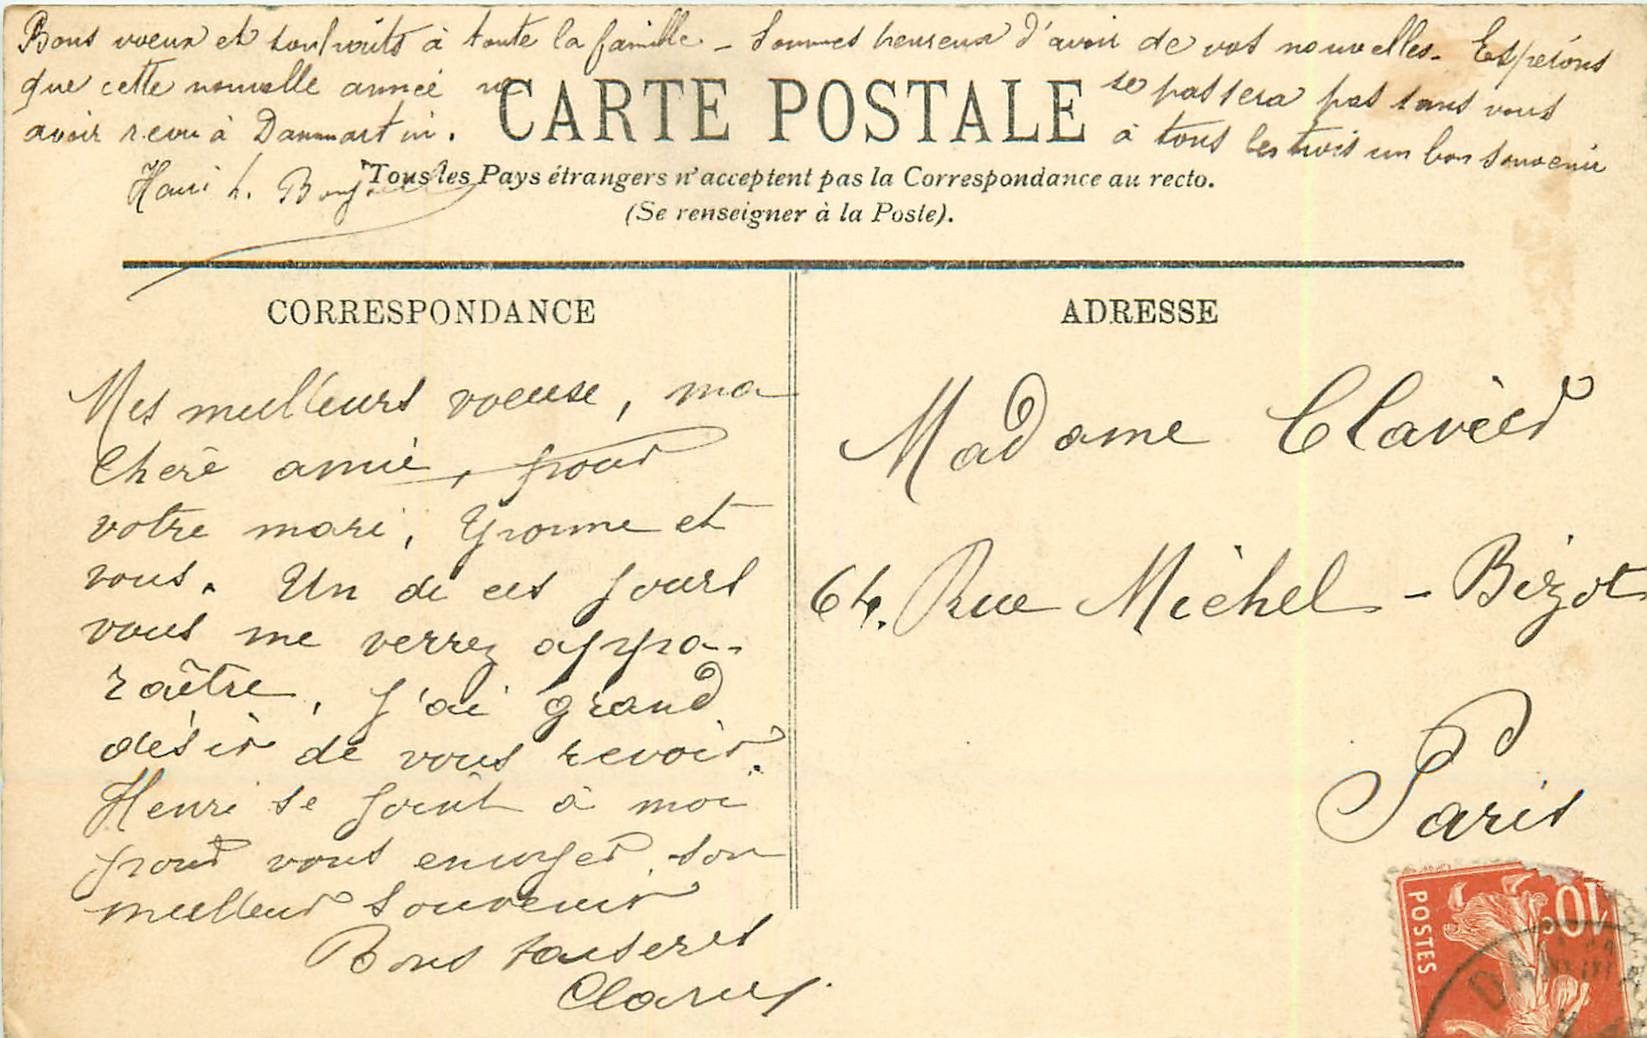 Bons voeux et souhaits à toute la famille - Sommes heureux d'avoir de vos nouvelles - Espérons
que cette nouvelle année ne se passera pas sans vous
avoir revu à Dammartin. à tous les trois un bon souvenir
Henri L.
CARTE POSTALE
Tous les Pays étrangers n'acceptent pas la Correspondance au recto.
(Se renseigner à la Poste).
CORRESPONDANCE
Mes meilleurs voeux, ma
chère amie, pour
votre mari, Yvonne et
vous. Un de ces jours
vous me verrez appa-
raître, j'ai grand
désir de vous revoir.
Henri se joint à moi
pour vous envoyer son
meilleur souvenir
Bons baisers
ADRESSE
Madame
64. Rue Michel-Bizot
Paris
POSTES
10c
DA